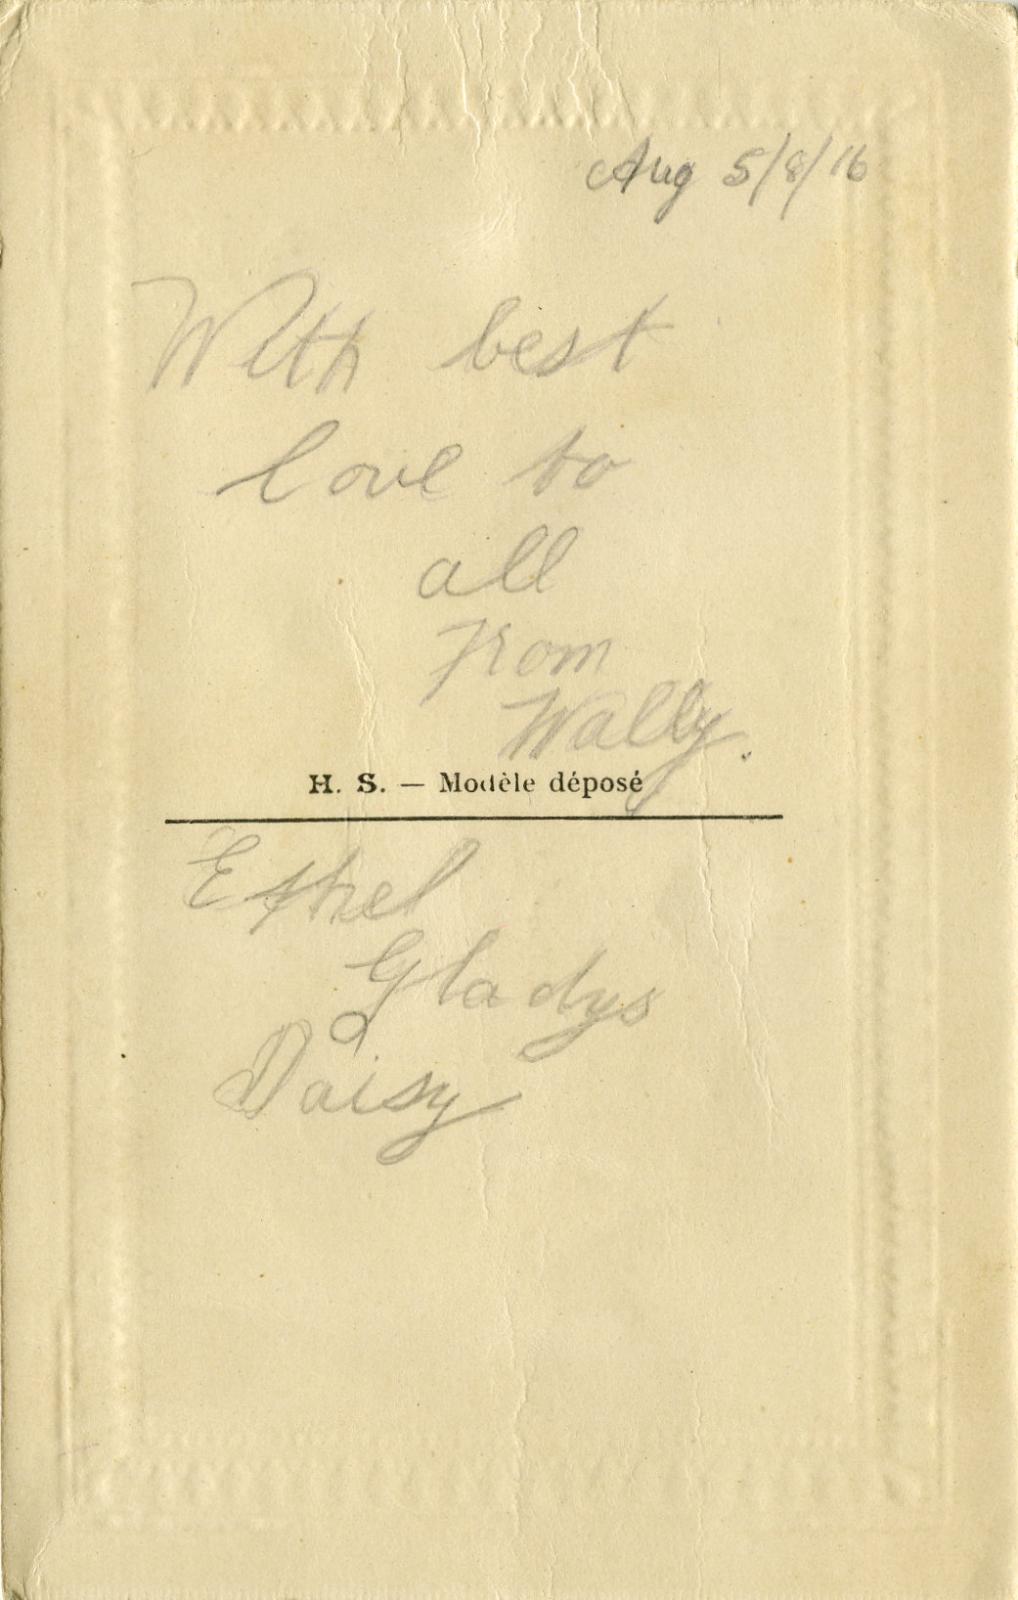 Aug 5/8/16
With best
love to
all
From
Wally.
H. S. — Modèle déposé
Ethel
Gladys
Daisy